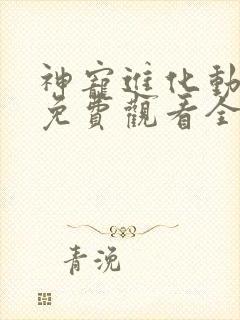 神寵進化動
免費觀看全
青浼